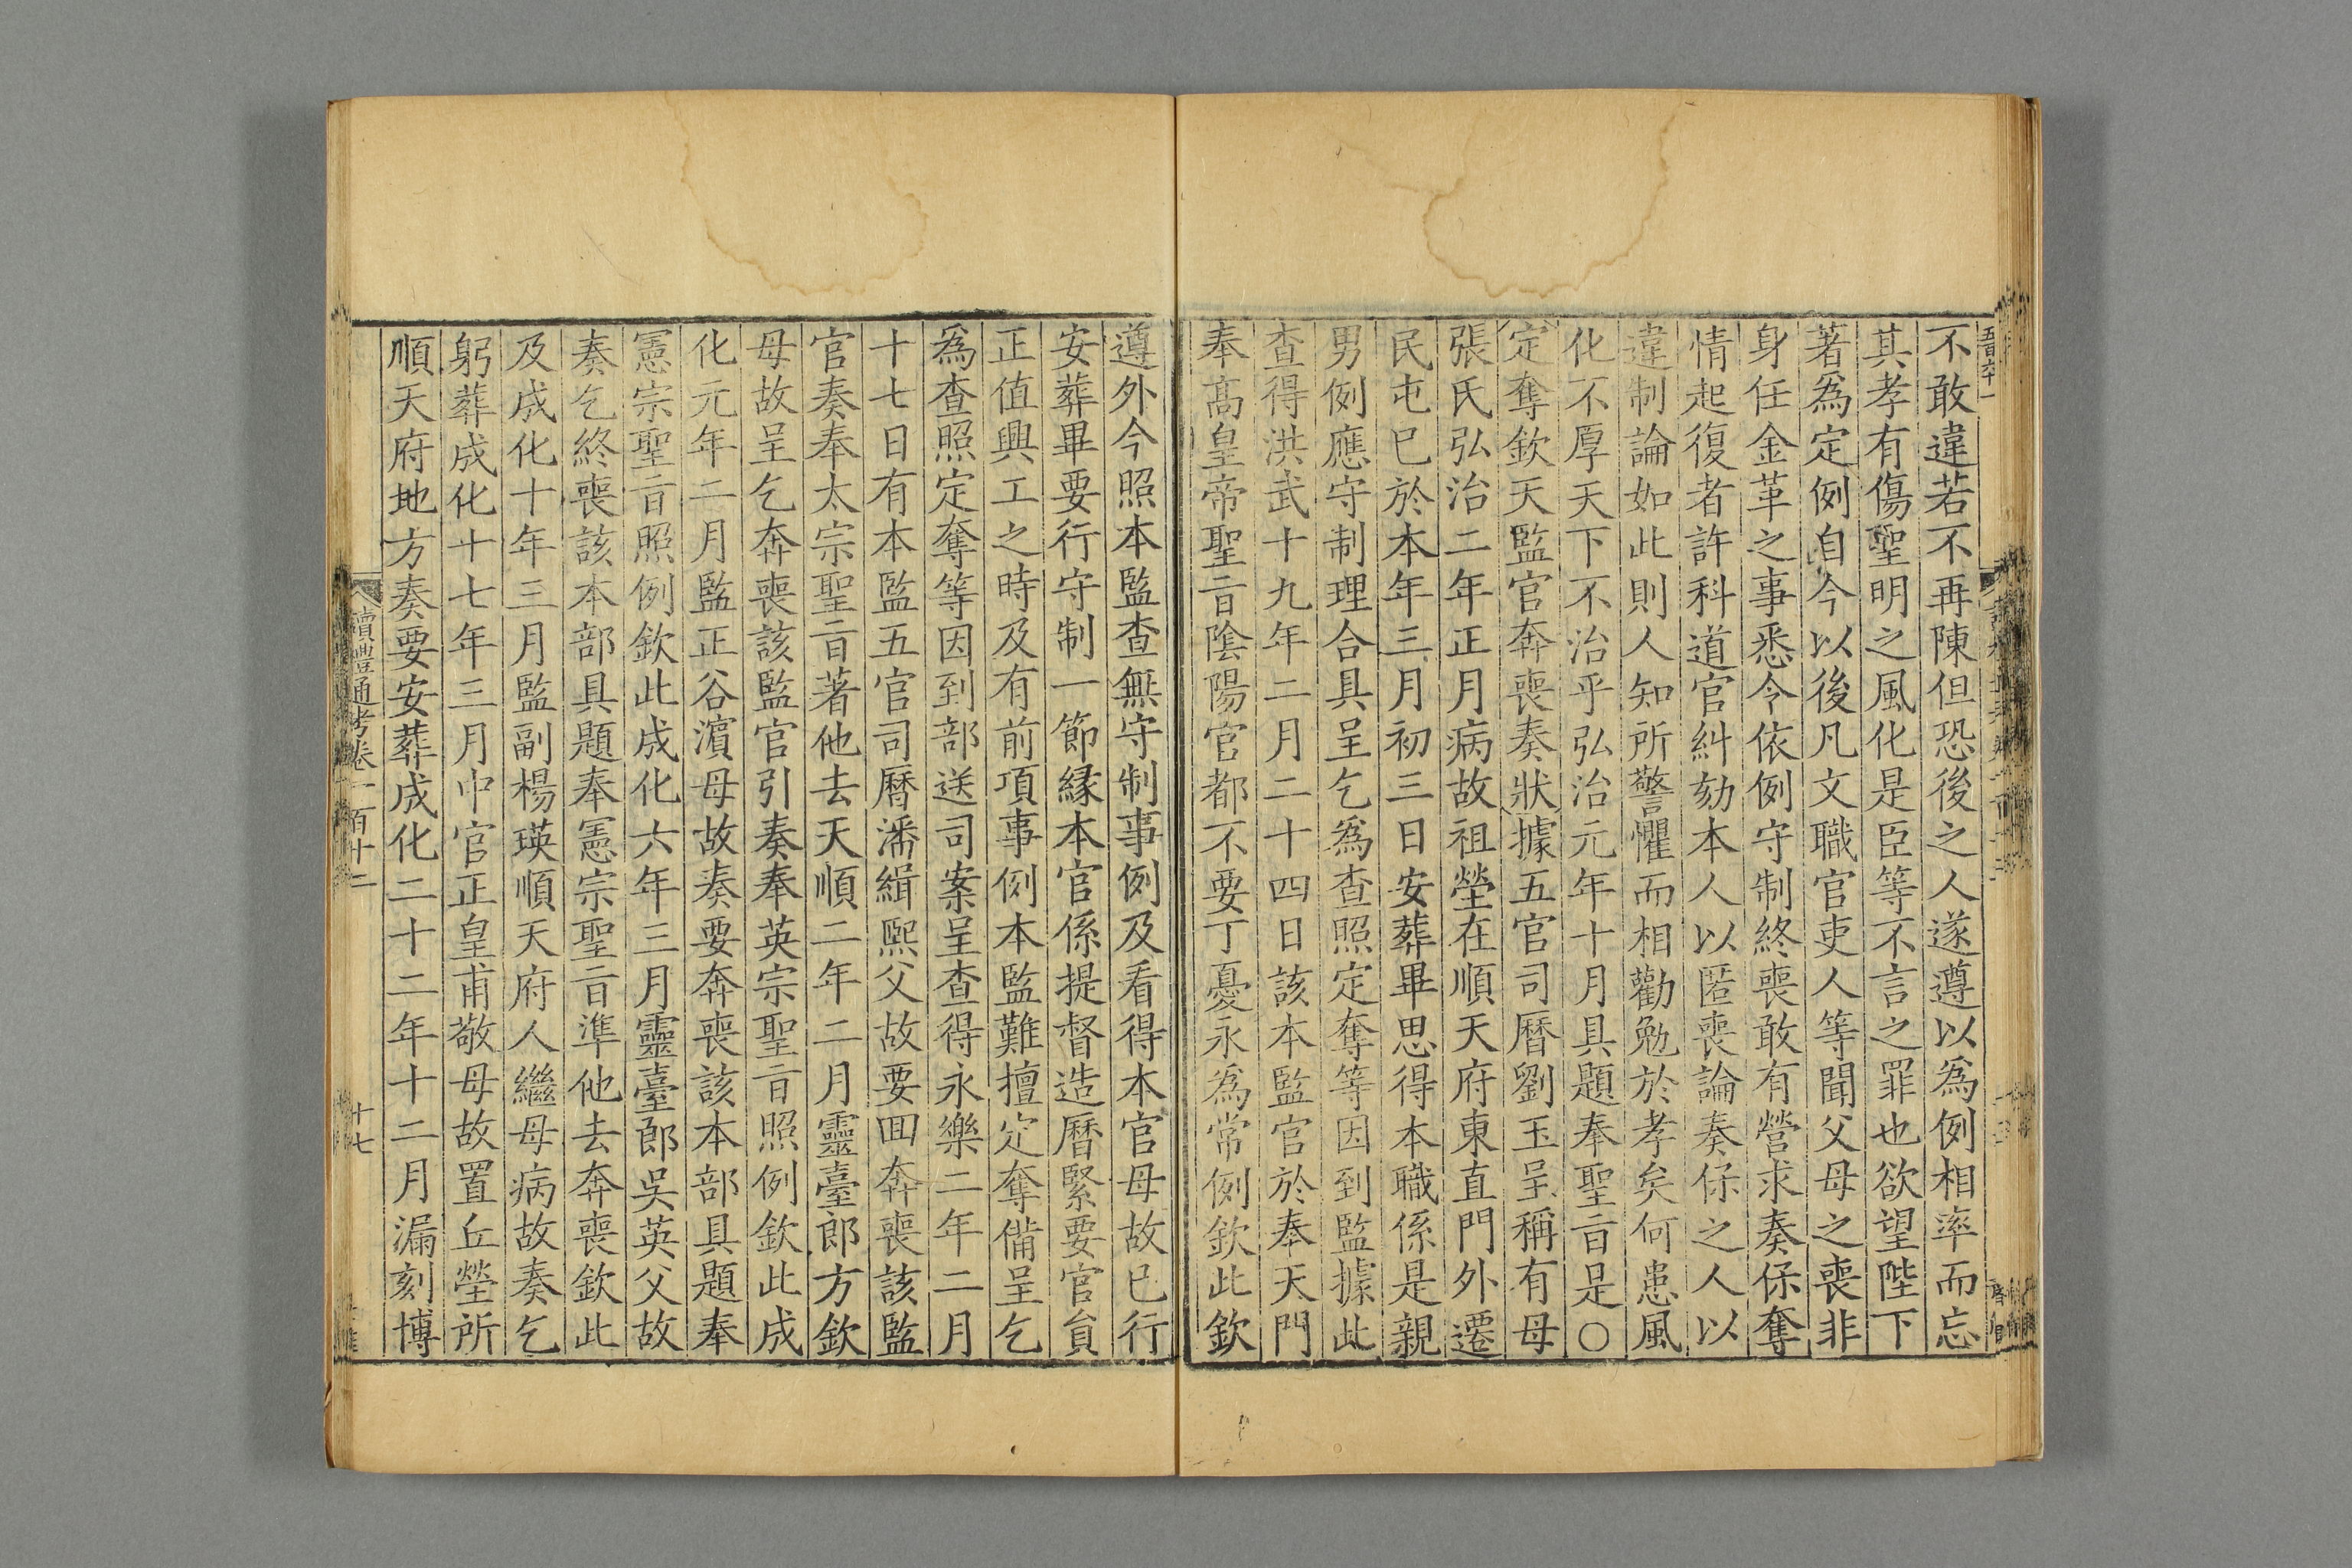 不敢違若不再陳但恐後之人遂遵以爲例相率而忘
其孝有傷聖明之風化是臣等不言之罪也欲望陛下
著爲定例自今以後凡文職官吏人等聞父母之喪非
身任金革之事悉令依例守制終喪敢有營求奏保奪
情起復者許科道官糾劾本人以匿喪論奏保之人以
違制論如此則人知所警懼而相勸勉於孝矣何患風
化不厚天下不治乎弘治元年十月具題奉聖旨是〇
定奪欽天監官奔喪奏狀據五官司曆劉玉呈稱有母
張氏弘治二年正月病故祖塋在順天府東直門外遷
民屯巳於本年三月初三日安葬畢思得本職係是親
男例應守制理合具呈乞爲查照定奪等因到監據此
查得洪武十九年二月二十四日該本監官於奉天門
奉髙皇帝聖旨陰陽官都不要丁憂永為常例欽此欽
遵外今照本監查無守制事例及看得本官母故已行
安葬畢要行守制一節縁本官係提督造曆緊要官貟
正值興工之時及有前項事例本監難擅定奪備呈乞
爲查照定奪等因到部送司案呈查得永樂二年二月
十七日有本監五官司曆潘緝熙父故要囬奔喪該監
官奏奉太宗聖旨著他去天順二年二月靈臺郎方欽
母故呈乞奔喪該監官引奏奉英宗聖旨照例欽此成
化元年二月監正谷濵母故奏要奔喪該本部具題奉
憲宗聖旨照例欽此成化六年三月靈臺郎吳英父故
奏乞終喪該本部具題奉憲宗聖旨準他去奔喪欽此
及成化十年三月監副楊瑛順天府人繼母病故奏乞
躬葬成化十七年三月中官正皇甫敬母故置丘塋所
順天府地方奏要安葬成化二十二年十二月漏刻博
讀禮通考卷一百十二
十七